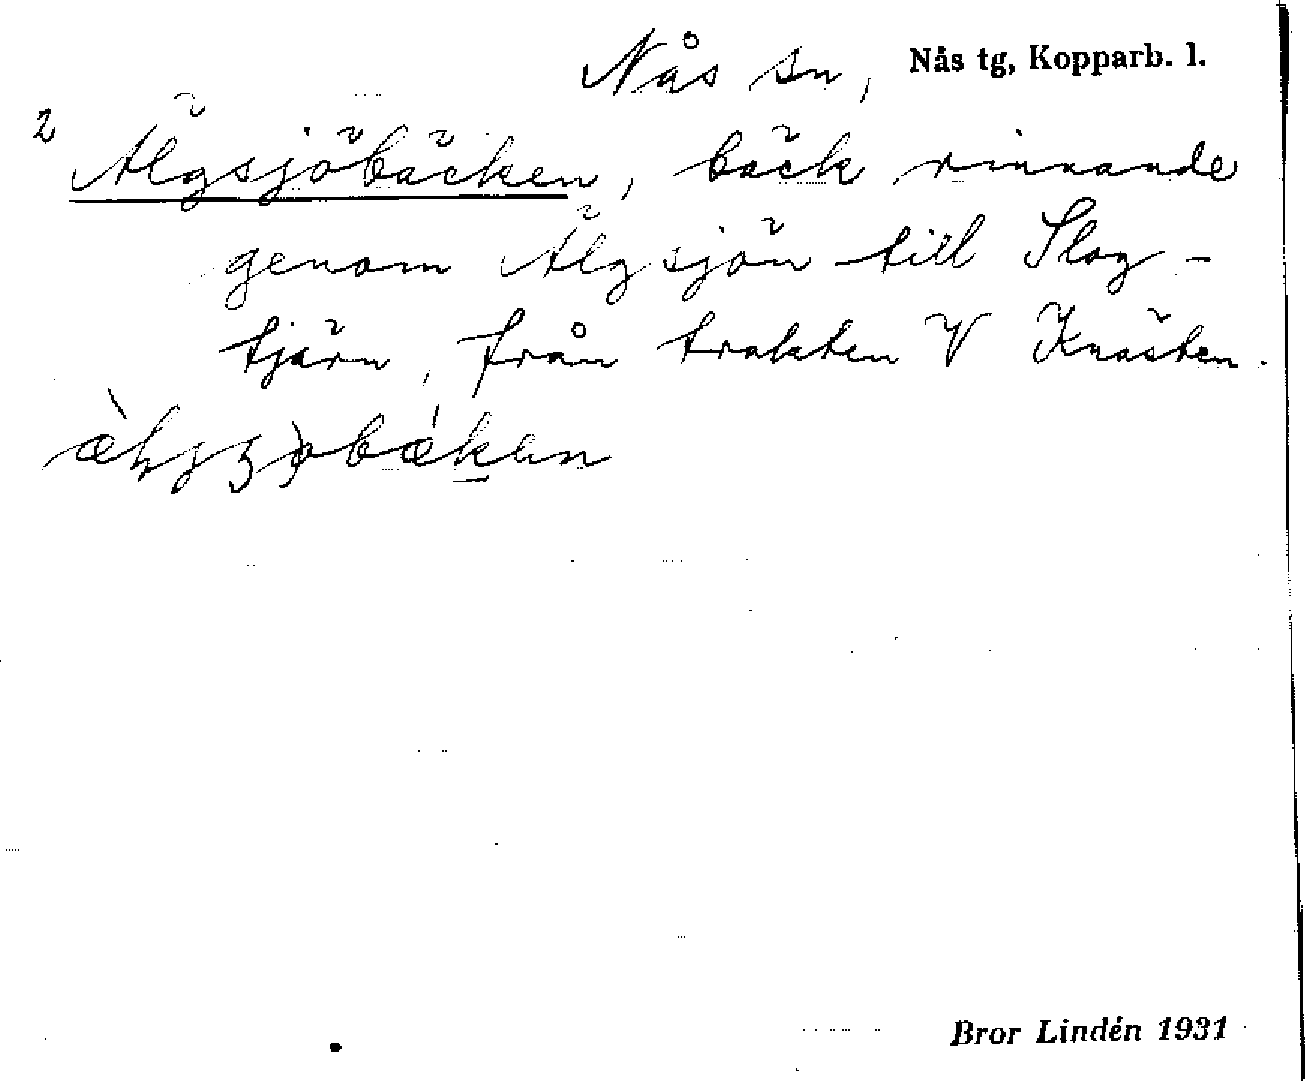 Nås sn, Nås tg, Kopparb. l.
2 Älgsjöbäcken, bäck rinnande
genom Älgsjön till Slog-
tjärn, från trakten V Knästen.
Bror Lindén 1931